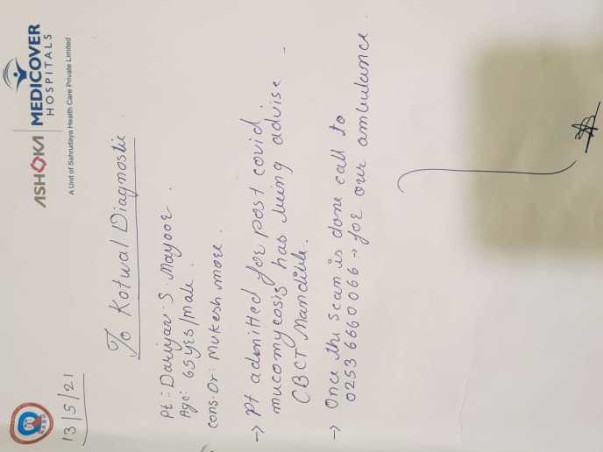 ASHOKA MEDICOVER
HOSPITALS
A Unit of Sahrudaya Health Care Private Limited
13/5/21
To Kotwal Diagnostic
Pt:- S. Mayoor.
Age: 65 yrs/Male.
Cons. Dr: Mukesh more.
→ Pt admitted for post covid
mucomycosis has being advise -
CBCT Mandible.
→ Once the scan is done call to
0253 6660066 → for our ambulance.